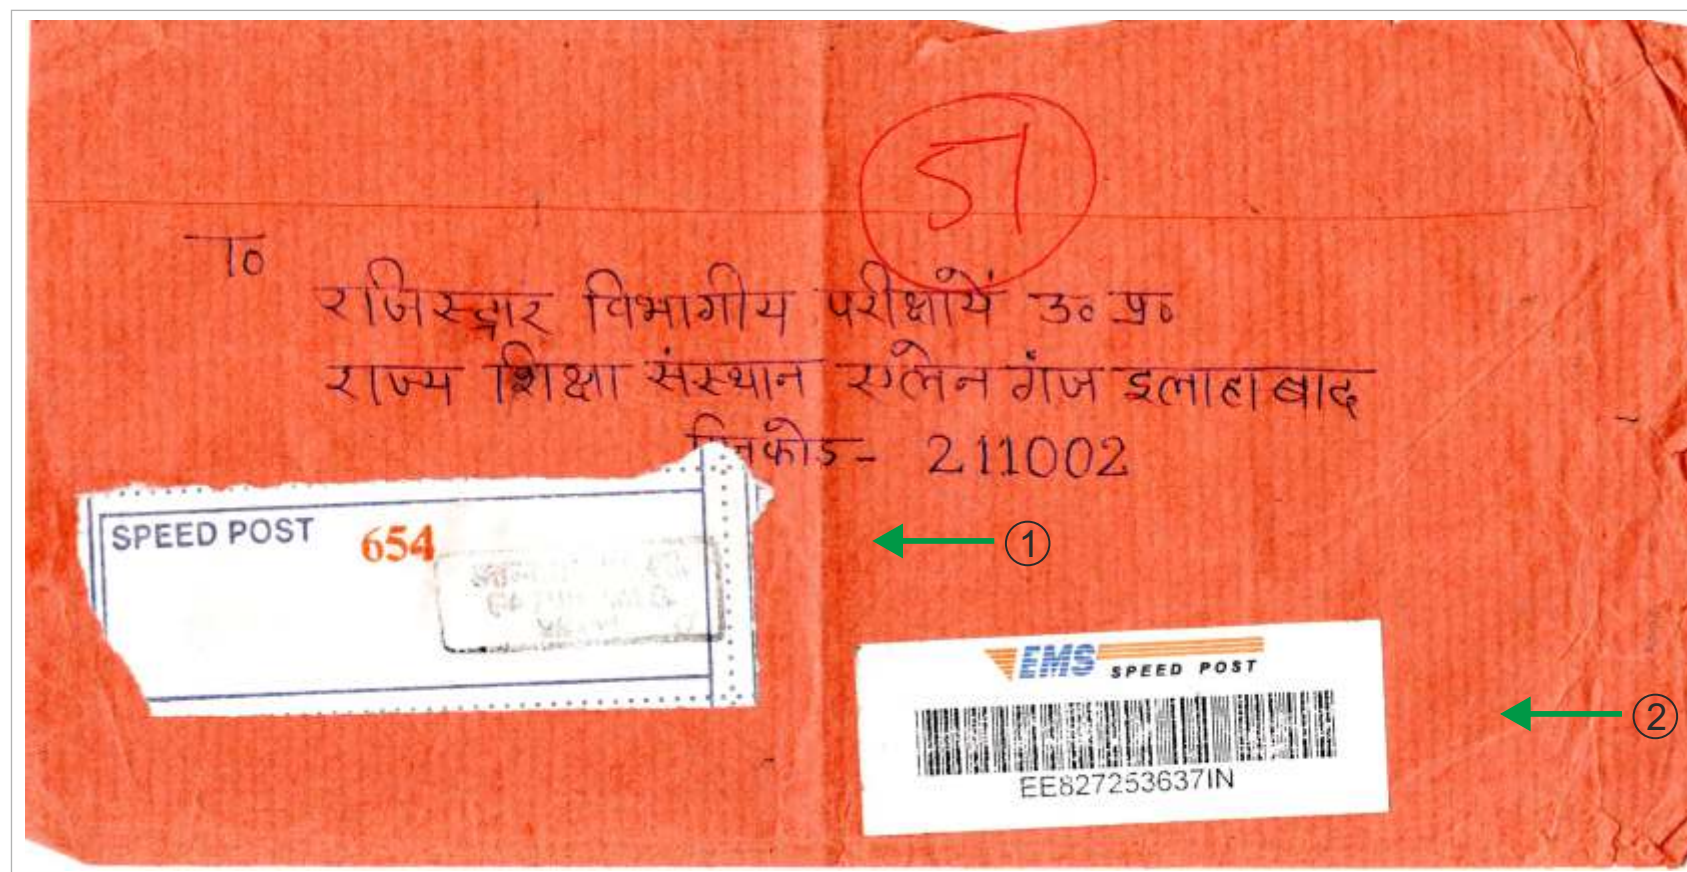 51
To
रजिस्ट्रार विभागीय परीक्षायें उ० प्र०
राज्य शिक्षा संस्थान एलेन गंज इलाहाबाद
पिनकोड - 211002
SPEED POST 654
①
EMS SPEED POST
②
EE827253637IN